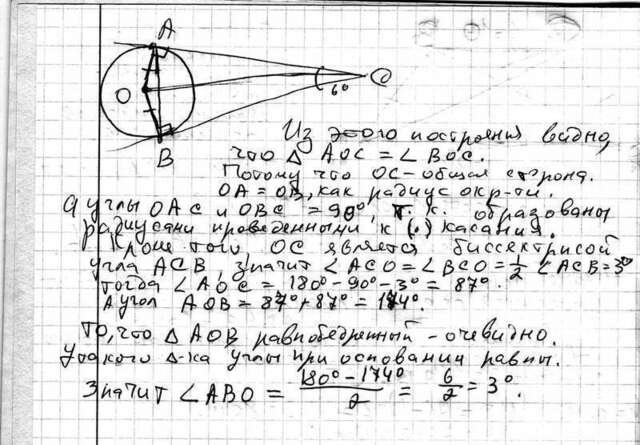 A
O
6°
C
B
Из этого построения видно,
что △ AOC = ∠ BOC.
Потому что OC - общая сторона.
OA = OB, как радиус окр-ти.
А углы OAC и OBC = 90°, т.к. образованы
радиусами проведенными к (•) касания.
Кроме того OC является биссектрисой
угла ACB, значит ∠ACO = ∠BCO = 1/2 ∠ACB = 3°
тогда ∠AOC = 180° - 90° - 3° = 87°.
А угол AOB = 87° + 87° = 174°.
То, что △ AOB равнобедренный - очевидно.
У такого △-ка углы при основании равны.
Значит ∠ABO = (180° - 174°)/2 = 6/2 = 3°.